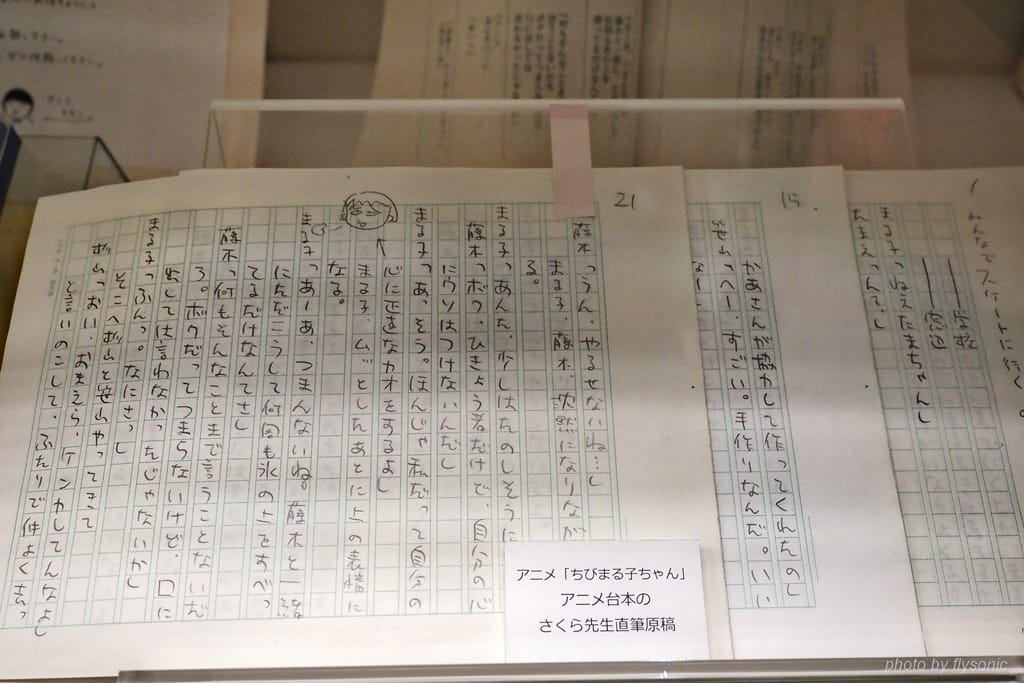 1
みんなでスケートに行く。
――学校
――窓辺
まる子「ねえたまちゃん」
たまえ「んで、し
15.
かあさんが協力して作ってくれたの」
笹山「へー、すごい。手作りなんだ。いい
なー
21
藤木「うん、やるせないね…」
まる子、藤木、沈黙になりなが
る。
まる子「あんた、少しはたのしそうに
藤木「ボク、ひきょう者だけど、自分の心
にウソはつけないんだ」
まる子「あっそう。ほんじゃ私だって自分の
心に正直なカオをするよ」
まる子、ムッとしたあとに上の表情に
なる。
まる子「あーあ、つまんないね。藤木と一緒
にただこうして何回も氷の上をすべっ
てるだけなんてさ」
藤木「何もそんなことまで言うことないだ
ろ。ボクだってつまらないけど、口に
出しては言わなかったじゃないか」
まる子「ふんっ。なにさっ」
そこへ杉山と笹山やってきて
杉山「おい、おまえら、ケンカしてんなよ」
と言いのこして、ふたりで仲よく去っ
アニメ「ちびまる子ちゃん」
アニメ台本の
さくら先生直筆原稿
photo by flysonic